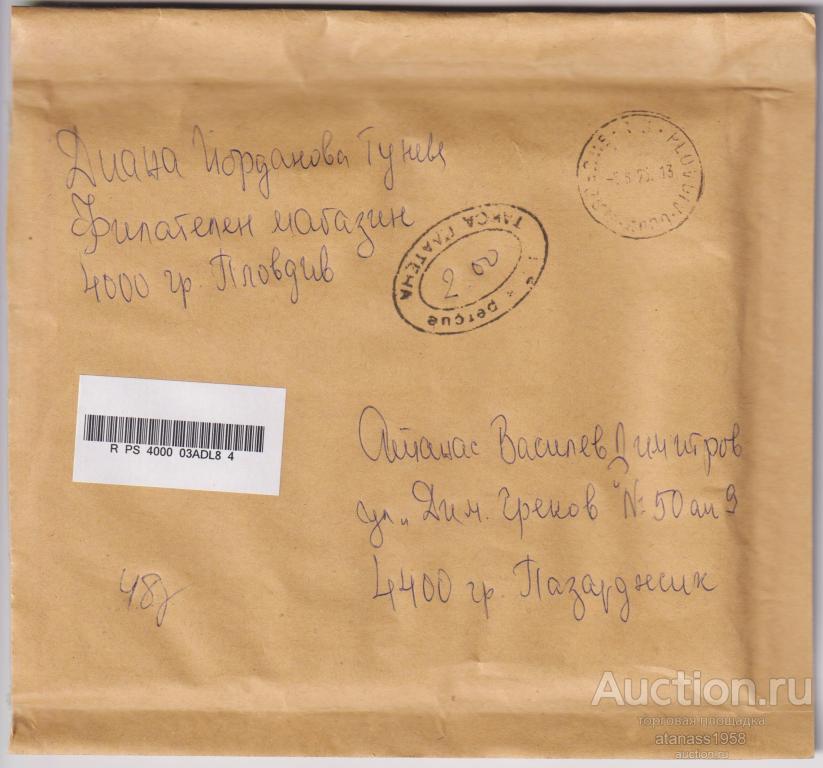 Диана Йорданова Гунева
Филателен магазин
4000 гр. Пловдив
ТАКСА ПЛАТЕНА
2.00
percue
PLOVDIV
R PS 4000 03ADL8 4
Атанас Василев Димитров
ул. „Дим. Греков №50 ап 9
4400 гр. Пазарджик
48г
Auction.ru
торговая площадка
atanass1958
auction.ru